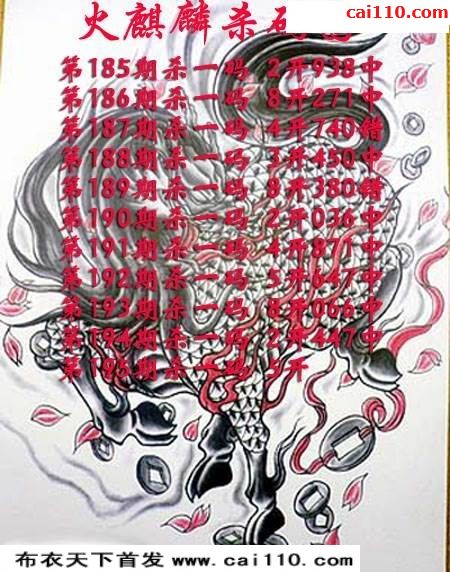 cai110.com
火麒麟杀码
第185期杀一码 2开938中
第186期杀一码 8开271中
第187期杀一码 4开740错
第188期杀一码 3开450中
第189期杀一码 8开380错
第190期杀一码 2开036中
第191期杀一码 4开871中
第192期杀一码 5开647中
第193期杀一码 8开066中
第194期杀一码 2开447中
第195期杀一码 5开
布衣天下首发 www.cai110.com